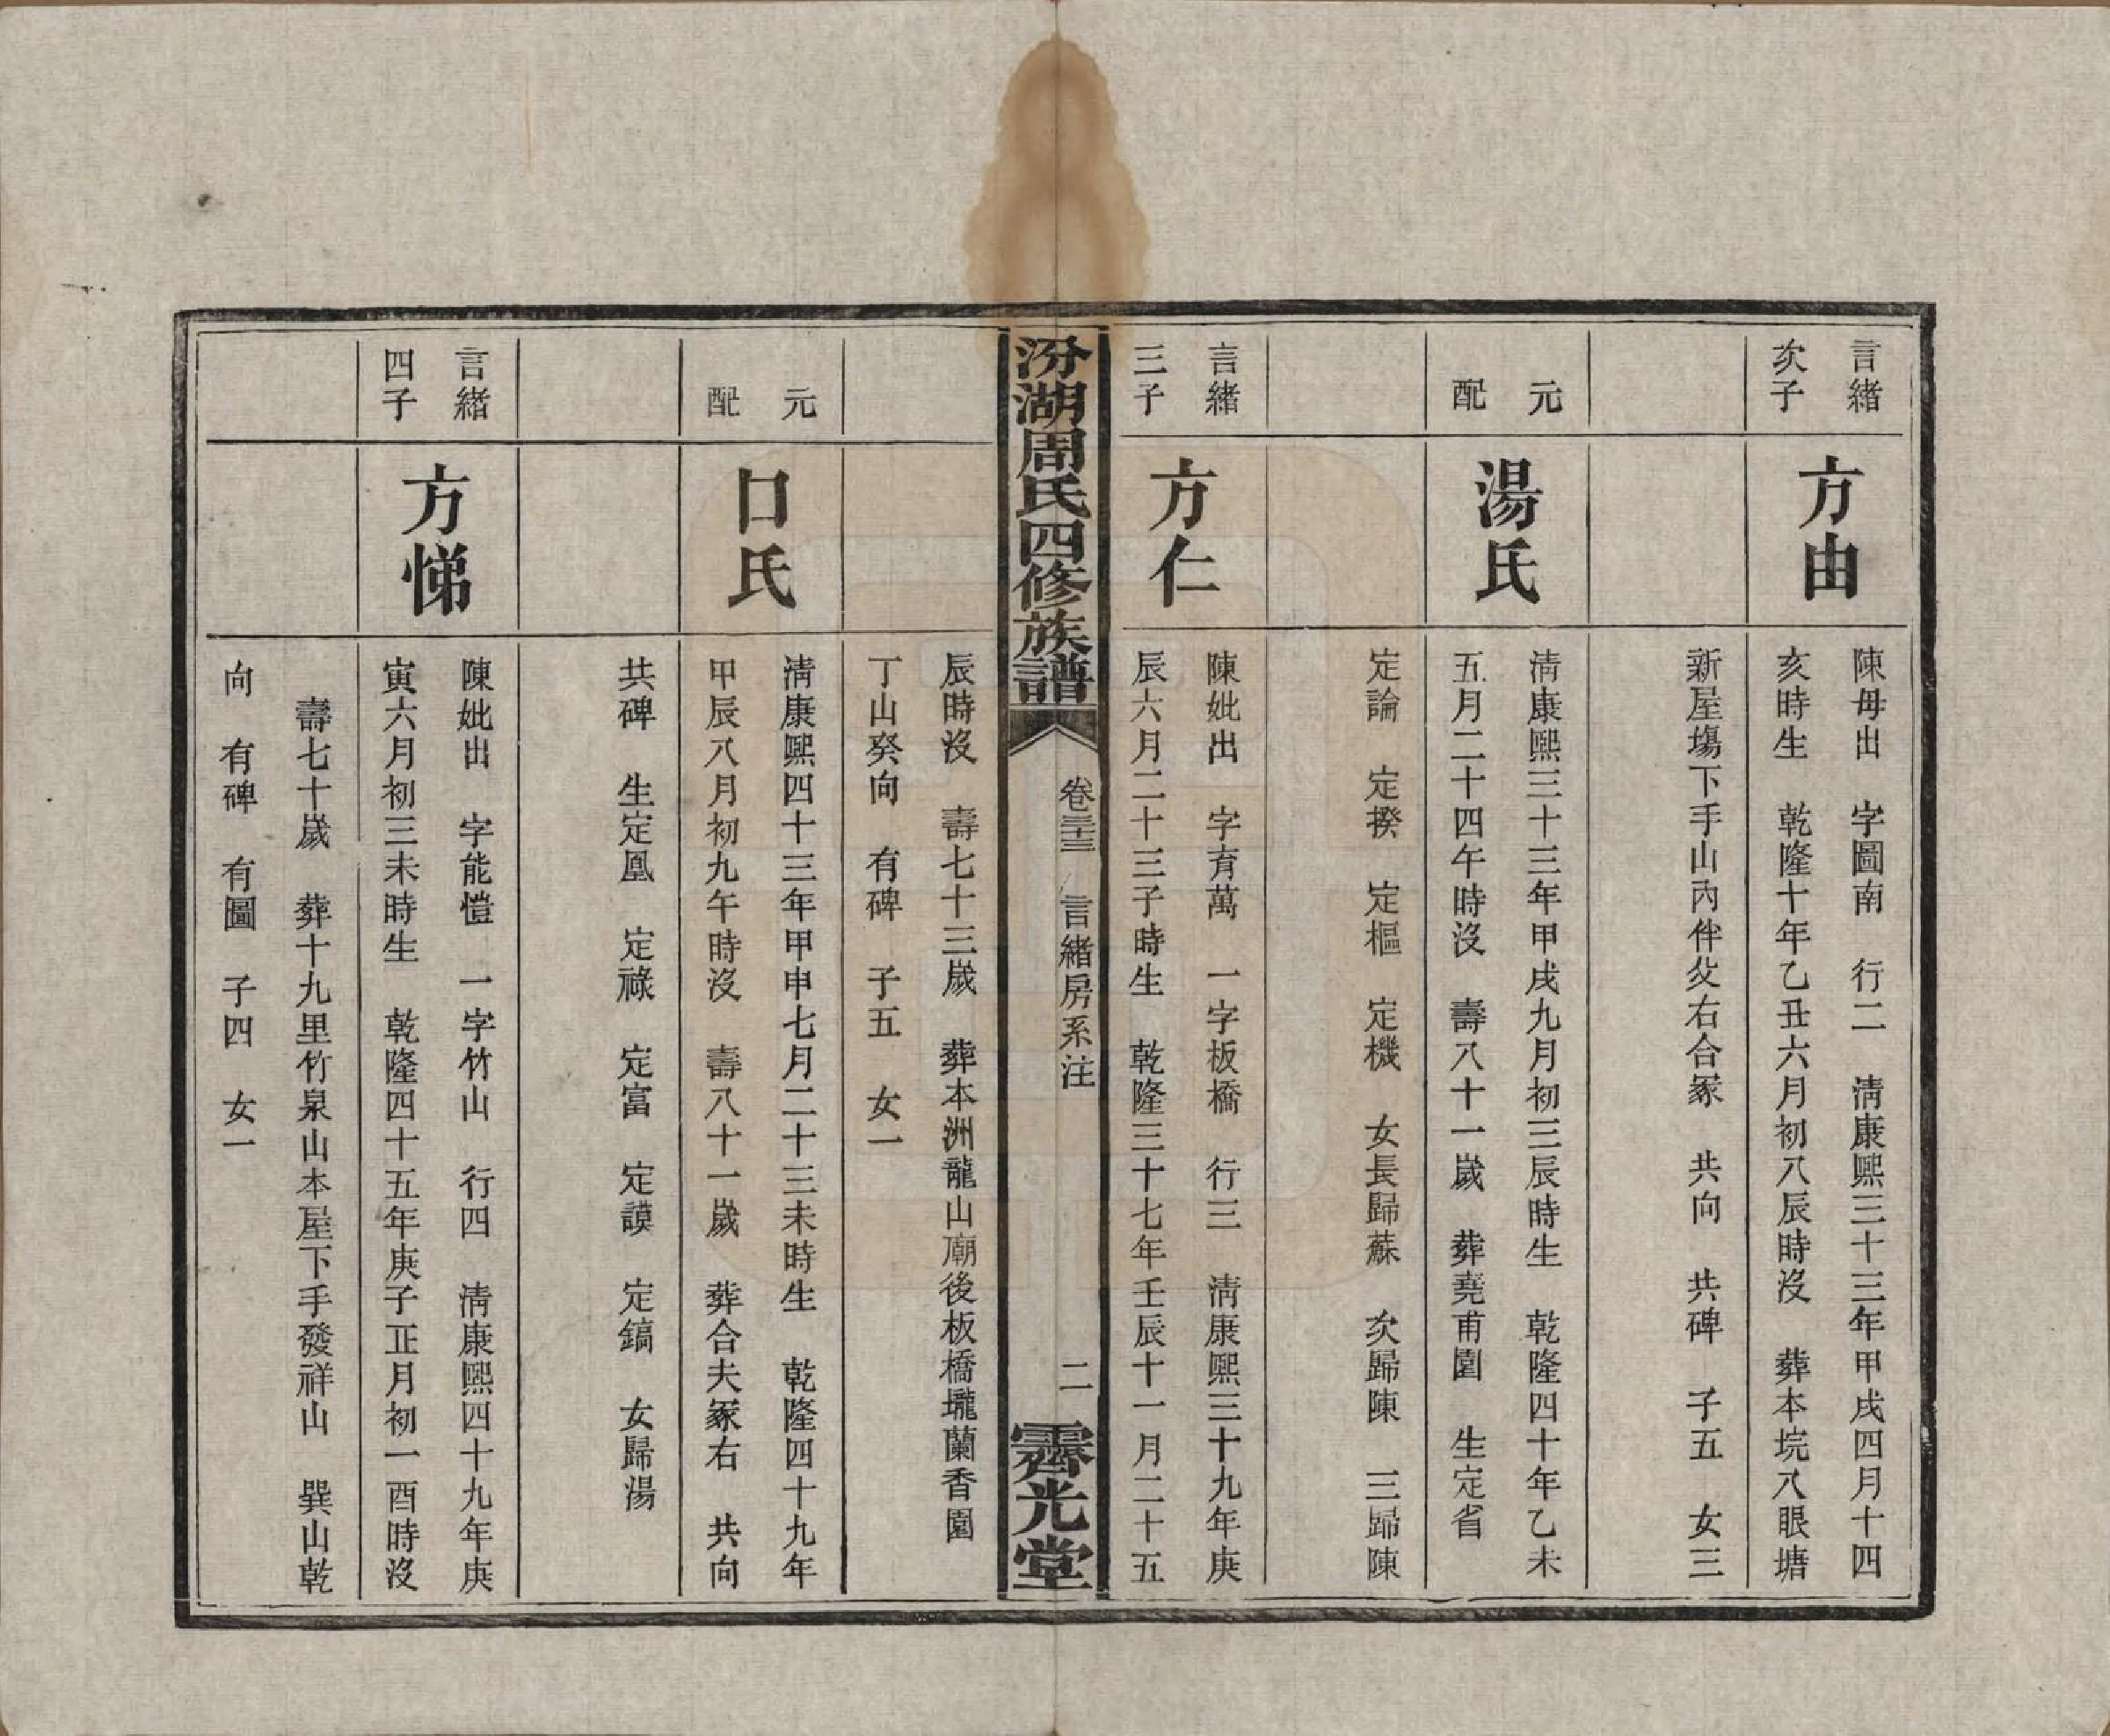 言緒
次子
方由
陳母出　字圖南　行二　清康熙三十三年甲戌四月十四
亥時生　乾隆十年乙丑六月初八辰時沒　葬本垸八眼塘
新屋塲下手山丙伴父右合冢　共向　共碑　子五　女三
元
配
湯氏
清康熙三十三年甲戌九月初三辰時生　乾隆四十年乙未
五月二十四午時沒　壽八十一歲　葬堯甫園　生定省
定論　定揆　定樞　定機　女長歸蘇　次歸陳　三歸陳
言緒
三子
方仁
陳妣出　字育萬　一字板橋　行三　清康熙三十九年庚
辰六月二十三子時生　乾隆三十七年壬辰十一月二十五
汾湖周氏四修族譜
卷三十三　言緒房系注
二
霽光堂
辰時沒　壽七十三歲　葬本洲龍山廟後板橋壠蘭香園
丁山癸向　有碑　子五　女一
元
配
口氏
清康熙四十三年甲申七月二十三未時生　乾隆四十九年
甲辰八月初九午時沒　壽八十一歲　葬合夫冢右　共向
共碑　生定鳳　定祿　定富　定謨　定鎬　女歸湯
言緒
四子
方悌
陳妣出　字能愷　一字竹山　行四　清康熙四十九年庚
寅六月初三未時生　乾隆四十五年庚子正月初一酉時沒
壽七十歲　葬十九里竹泉山本屋下手發祥山　巽山乾
向　有碑　有圖　子四　女一